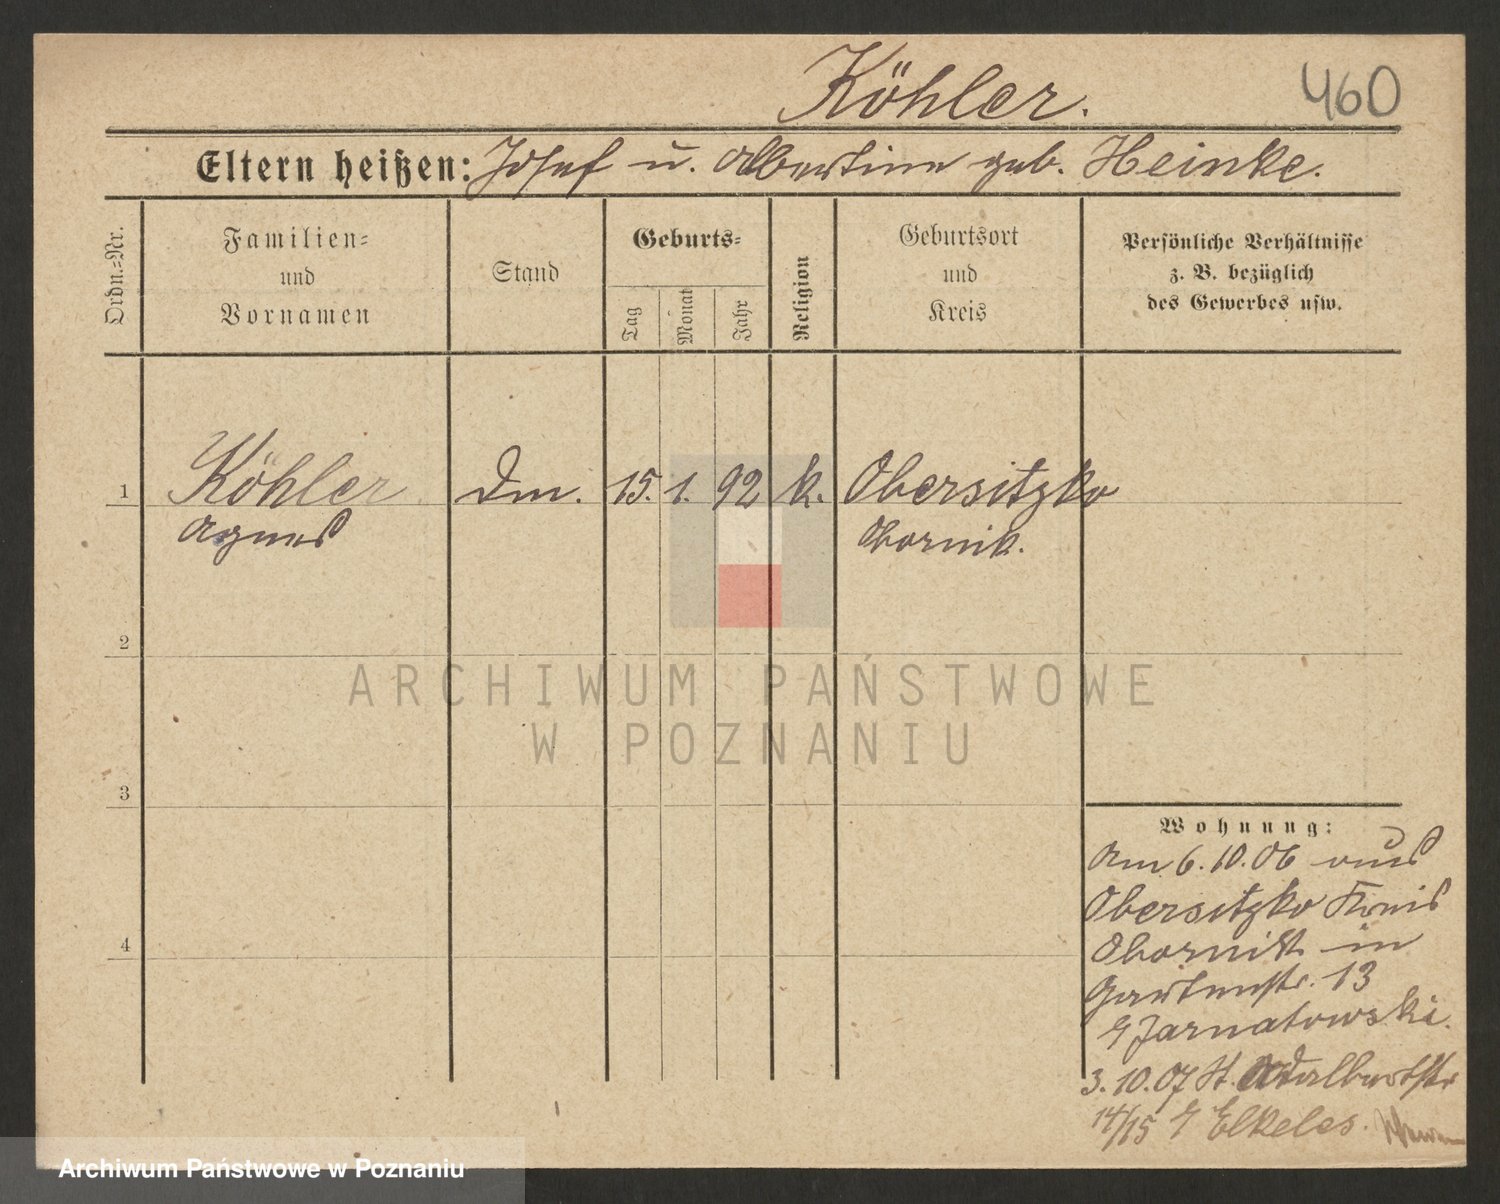 Köhler.
460
Eltern heißen: Josef u. Albertine geb. Heinke.
Ordn.-Nr.
Familien-
und
Vornamen
Stand
Geburts-
Tag
Monat
Jahr
Religion
Geburtsort
und
Kreis
Persönliche Verhältnisse
z. B. bezüglich
des Gewerbes usw.
1 Köhler Dm. 15. 1. 92 k. Obersitzko
Agnes Obornik.
2
ARCHIWUM PAŃSTWOWE
W POZNANIU
3
Wohnung:
Am 6.10.06 aus
Obersitzko Kreis
4
Obornik in
Gartenstr. 13
Jarnatowski.
3.10.07 St. Adalbertstr
14/15 Elkeles.
Archiwum Państwowe w Poznaniu